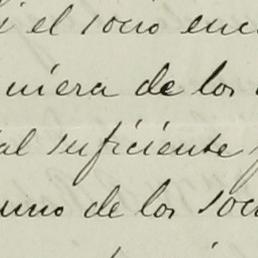 si el socio enc
niera de los
al suficiente
uno de los soc